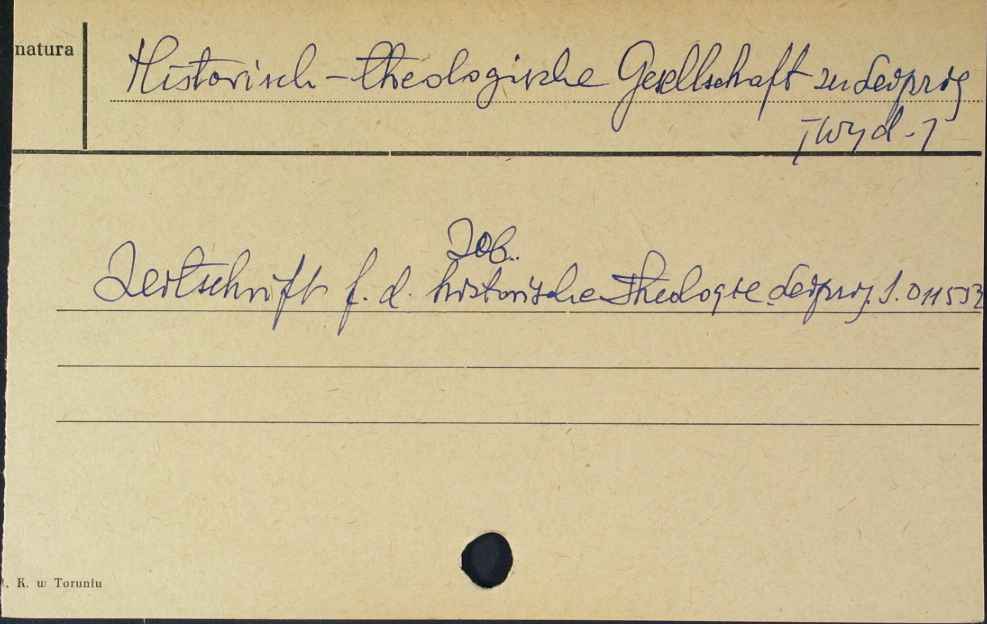 natura
Historisch-theologische Gesellschaft zu Leipzig
[wyd.]
Zob.
Zeitschrift f. d. historische Theologie Leipzig. S. 011532
. K. w Toruniu